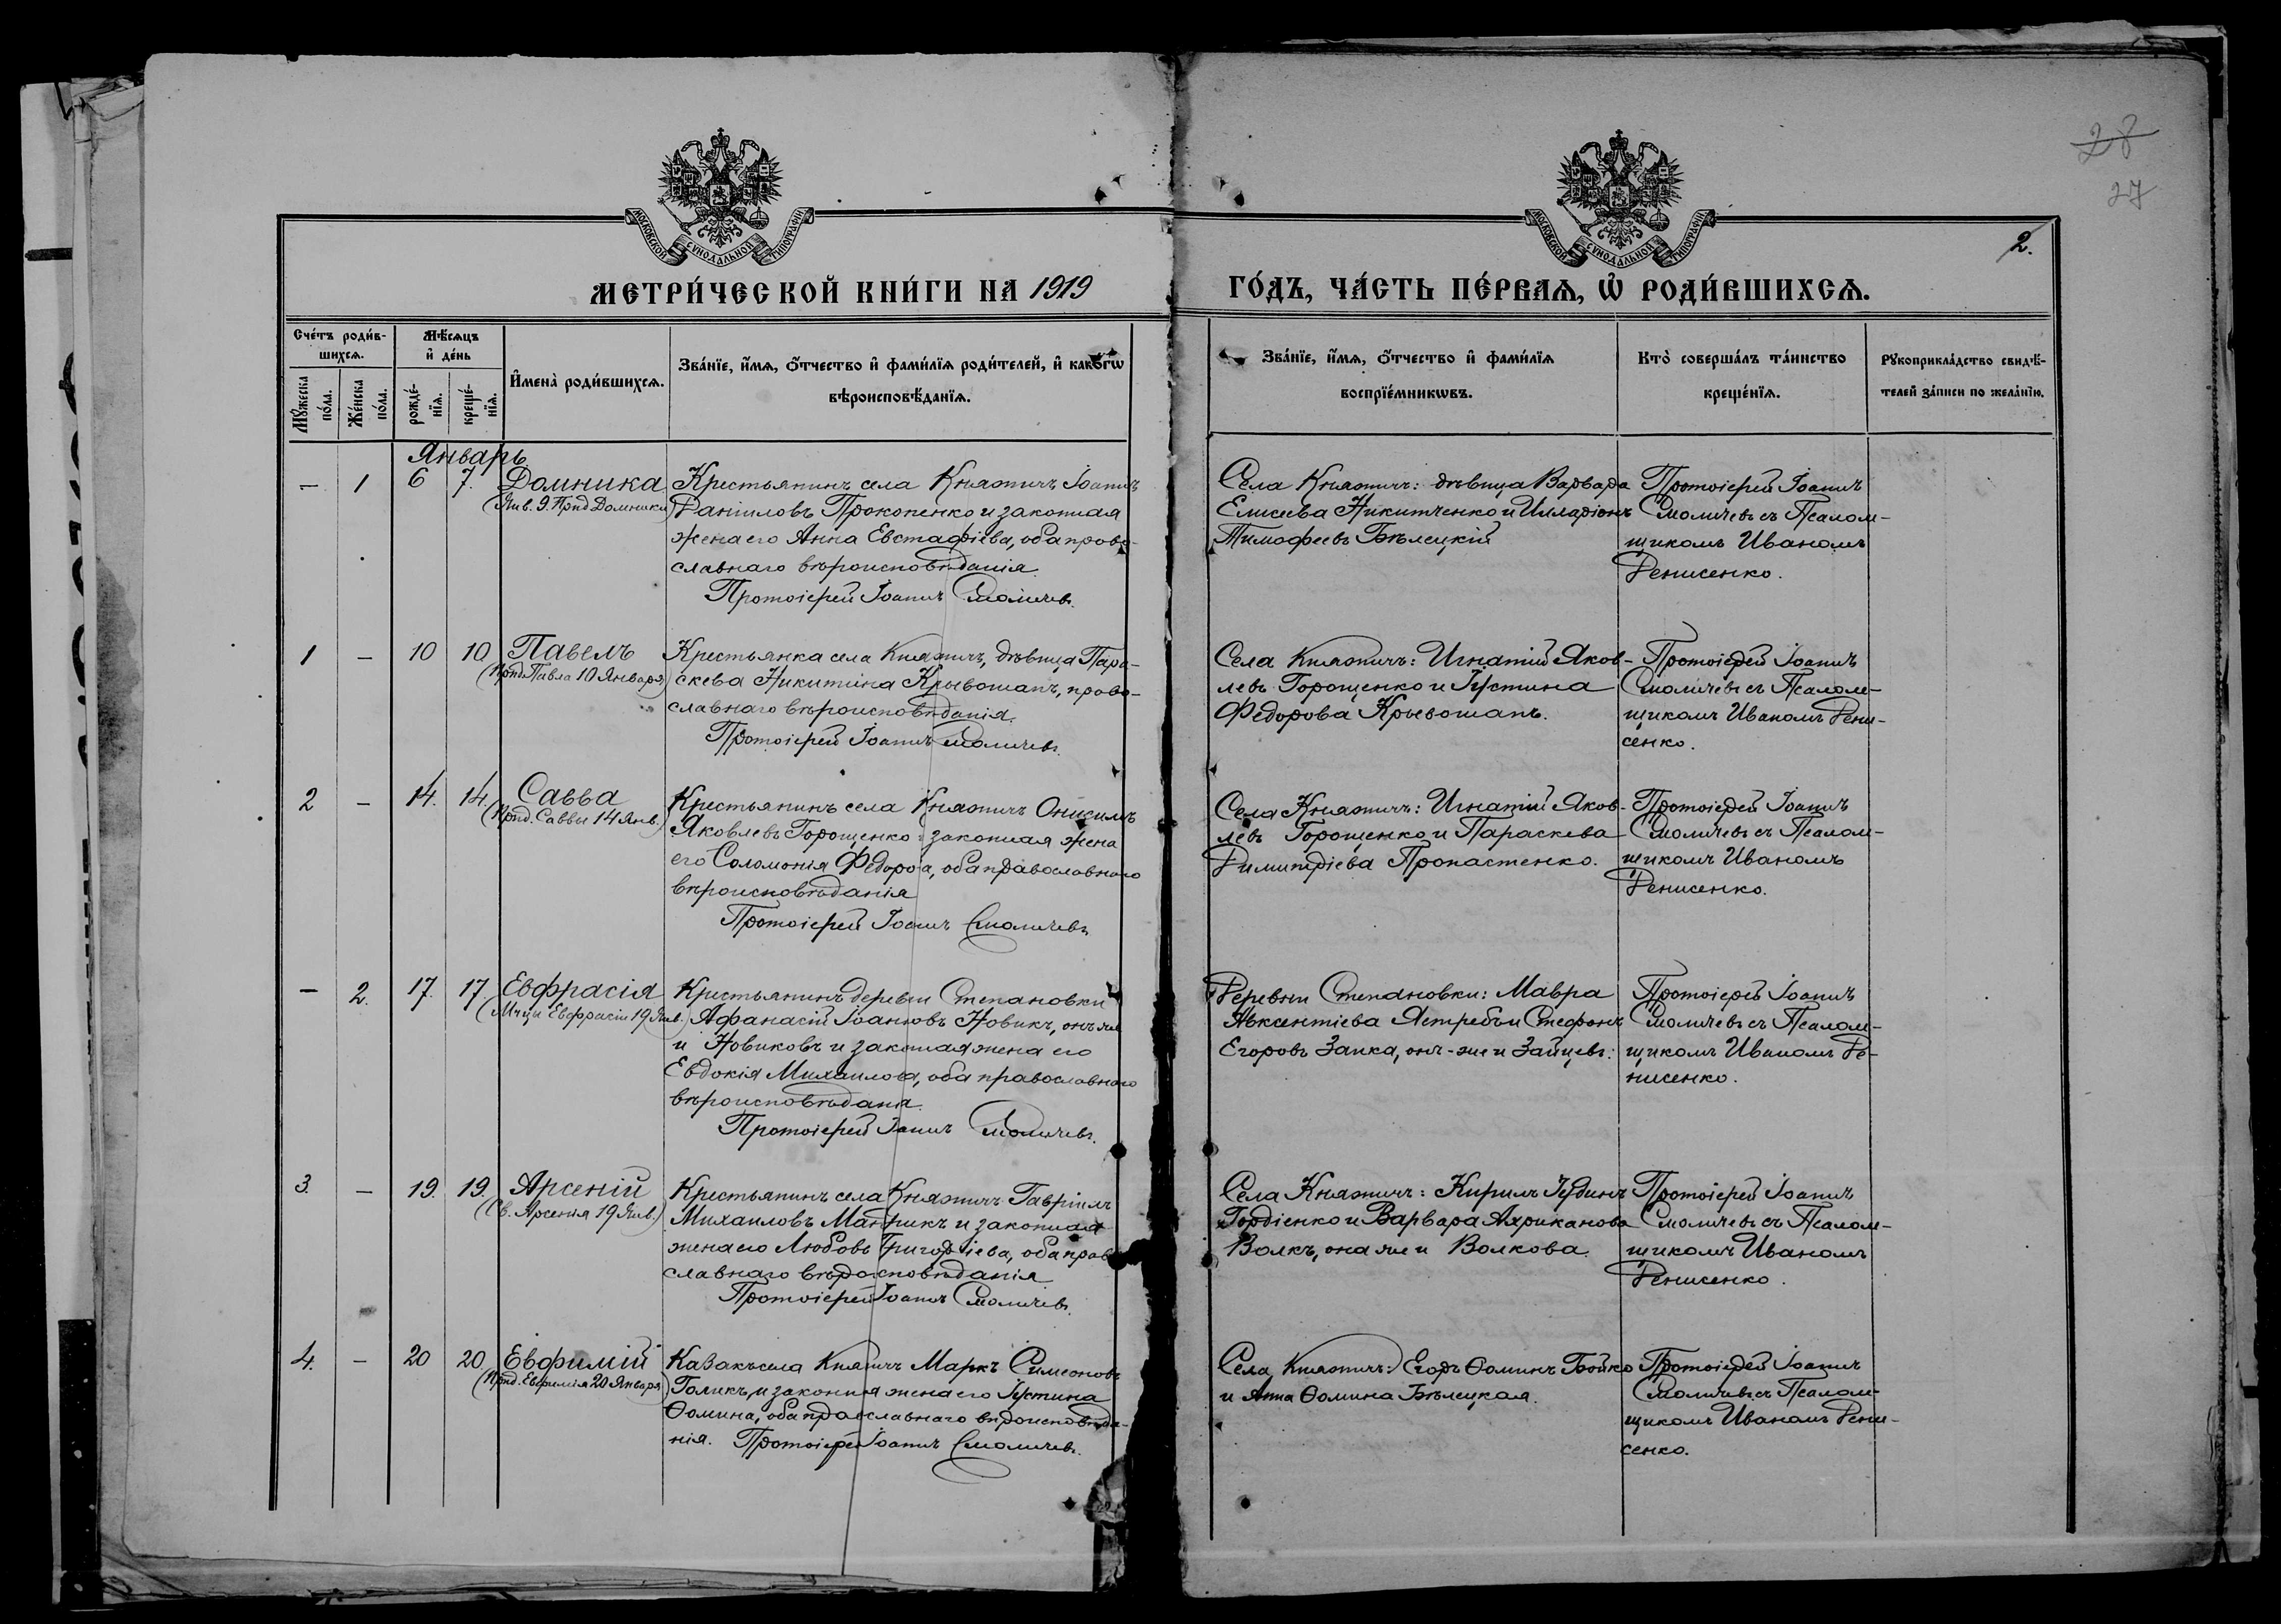 28
27
МОСКОВСКОЙ СѴНОДАЛЬНОЙ ТИПОГРАФІИ
МОСКОВСКОЙ СѴНОДАЛЬНОЙ ТИПОГРАФІИ
2.
МЕТРИ́ЧЕСКОЙ КНИ́ГИ НА 1919
ГО́ДЪ, ЧА́СТЬ ПЕ́РВАѦ, Ѡ҆ РОДИ́ВШИХСѦ.
Сче́тъ роди́в-
шихсѧ.
Мѣ́сѧцъ
и҆ де́нь
Мꙋ́жеска
по́ла.
Же́нска
по́ла.
рожде́-
нїѧ.
креще́-
нїѧ.
И҆мена̀ роди́вшихсѧ.
Зва́нїе, и҆́мѧ, ѻ҆́тчество и҆ фами́лїѧ роди́телей, и҆ како́гѡ
вѣроисповѣ́данїѧ.
Зва́нїе, и҆́мѧ, ѻ҆́тчество и҆ фами́лїѧ
воспрїе́мникѡвъ.
Кто̀ соверша́лъ та́инство
креще́нїѧ.
Рꙋкоприкла́дство свидѣ́-
телей за́писи по жела́нїю.
Январь
— 1 6 7. Домника
(Янв. 9. Прпд Домники)
Крестьянинъ села Княжичъ Іоаннъ
Даніиловъ Прокопенко и законная
жена его Анна Евстафіева, оба право-
славнаго вѣроисповѣданія.
Протоіерей Іоаннъ Смоличевъ.
Села Княжичъ: дѣвица Варвара
Елисеева Никитченко и Илларіонъ
Тимофеевъ Бѣлецкій
Протоіерей Іоаннъ
Смоличевъ съ Псалом-
щикомъ Иваномъ
Денисенко.
1 — 10 10 Павелъ
(Прпд. Павла 10 Января)
Крестьянка села Княжичъ, дѣвица Пара-
скева Никитина Крывошапъ, право-
славнаго вѣроисповѣданія.
Протоіерей Іоаннъ Смоличевъ.
Села Княжичъ: Игнатій Яков-
левъ Горощенко и Іустина
Федорова Крывошапъ.
Протоіерей Іоаннъ
Смоличевъ съ Псалом-
щикомъ Иваномъ Дени-
сенко.
2 — 14. 14. Савва
(Прпд. Саввы 14 Янв.)
Крестьянинъ села Княжичъ Онисимъ
Яковлевъ Горощенко и законная жена
его Соломонія Федорова, оба православнаго
вѣроисповѣданія
Протоіерей Іоаннъ Смоличевъ
Села Княжичъ: Игнатій Яков-
левъ Горощенко и Параскева
Димитріева Пропастенко.
Протоіерей Іоаннъ
Смоличевъ съ Псалом-
щикомъ Иваномъ
Денисенко.
— 2. 17. 17. Евфрасія
(Мчцы Евфрасіи 19 Янв.)
Крестьянинъ деревни Степановки
Афанасій Іоанновъ Новикъ, онъ же
и Новиковъ и законная жена его
Евдокія Михаилова, оба православнаго
вѣроисповѣданія.
Протоіерей Іоаннъ Смоличевъ.
Деревни Степановки: Мавра
Авксентіева Ястребъ и Стефанъ
Егоровъ Заика, онъ-же и Зайцевъ.
Протоіерей Іоаннъ
Смоличевъ съ Псалом-
щикомъ Иваномъ Де-
нисенко.
3. — 19. 19. Арсеній
(Св. Арсенія 19 Янв.)
Крестьянинъ села Княжичъ Гавріилъ
Михаиловъ Мандрикъ и законная
жена его Любовь Григоріева, оба право-
славнаго вѣроисповѣданія
Протоіерей Іоаннъ Смоличевъ.
Села Княжичъ: Кирилъ
Гордіенко и Варвара Африканова
Волкъ, она же и Волкова.
Протоіерей Іоаннъ
Смоличевъ съ Псалом-
щикомъ Иваномъ
Денисенко.
4. — 20 20. Евфимій
(Прпд. Евфимія 20 Января)
Казакъ села Княжичъ Маркъ Симеоновъ
Голикъ, и законная жена его Іустина
Ѳомина, оба православнаго вѣроисповѣда-
нія. Протоіерей Іоаннъ Смоличевъ.
Села Княжичъ: Егоръ Ѳоминъ Бойко
и Анна Ѳомина Бѣлецкая.
Протоіерей Іоаннъ
Смоличевъ съ Псалом-
щикомъ Иваномъ Дени-
сенко.